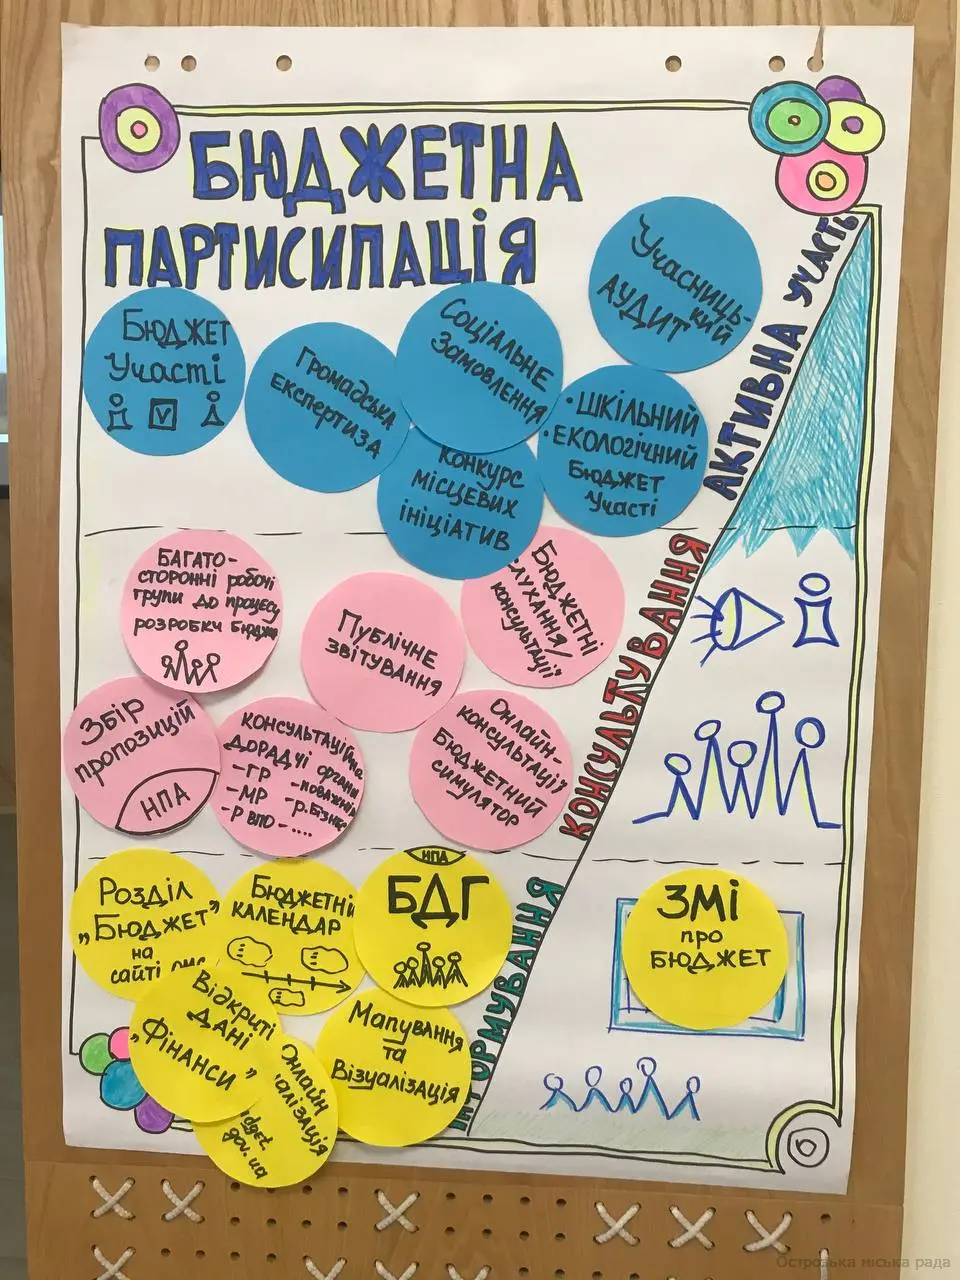 БЮДЖЕТНА
ПАРТИСИПАЦІЯ
Учасниць-
кий
АУДИТ
АКТИВНА УЧАСТЬ
Бюджет
Участі
V
Громадська
експертиза
Соціальне
Замовлення
• Шкільний
• Екологічний
Бюджет
Участі
конкурс
місцевих
ініціатив
КОНСУЛЬТУВАННЯ
Багато-
сторонні робочі
групи до процесу
розробки
Публічне
звітування
Бюджетні
слухання/
консультації
Збір
пропозицій
НПА
Консультаційно
дорадчі органи
- ГР
- МР
- Р ВПО - ....
- р.Бізнес
Онлайн-
консультації
Бюджетний
симулятор
ІНФОРМУВАННЯ
Розділ
„Бюджет”
на
сайті
Бюджетний
календар
НПА
БДГ
ЗМІ
про
БЮДЖЕТ
Відкриті
дані
„Фінанси”
Мапування
та
Візуалізація
Онлайн
gov.ua
Острозька міська рада